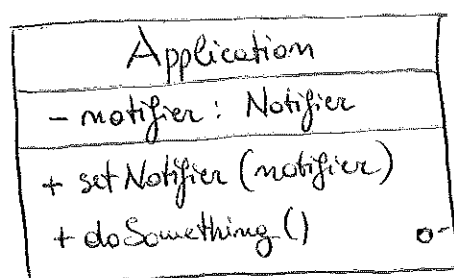 Application
- notifier: Notifier
+ setNotifier(notifier)
+ doSomething()